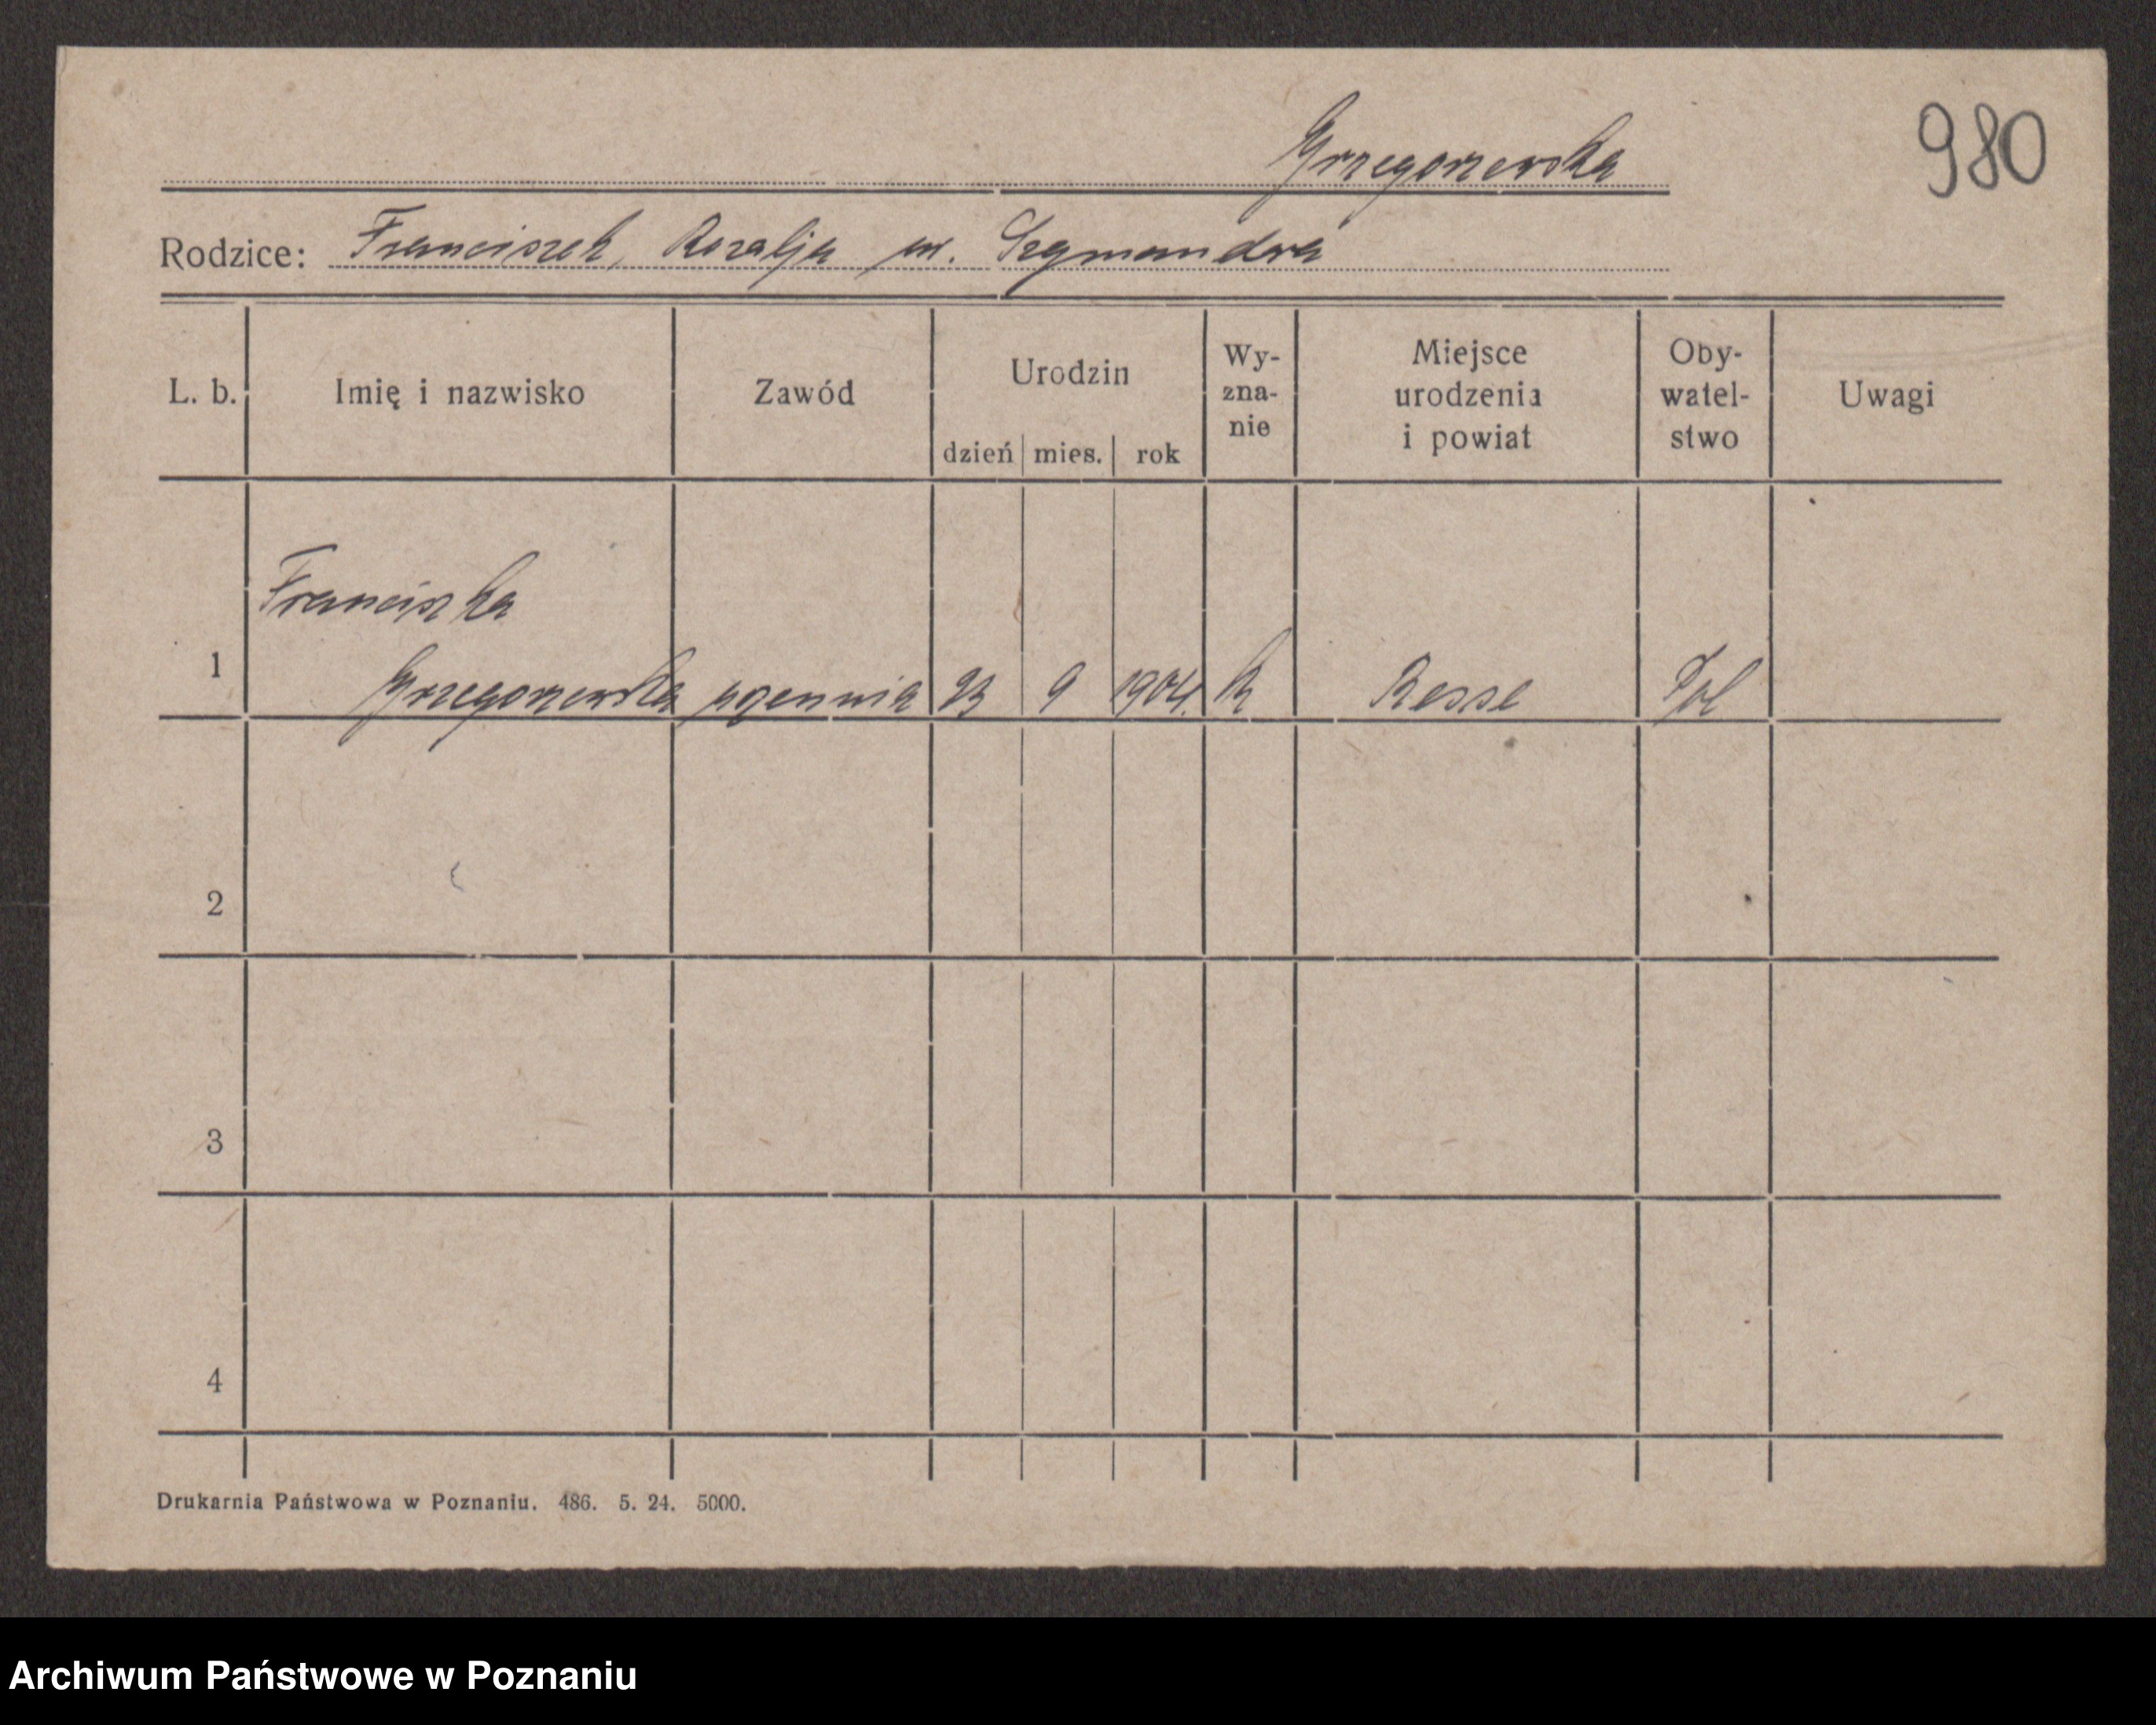 980
Grzegorzewska
Rodzice: Franciszek, Rozalja ur.
L. b. Imię i nazwisko Zawód Urodzin dzień mies. rok Wy-zna-nie Miejsce urodzenia i powiat Oby-watel-stwo Uwagi
Franciszka
1 Grzegorzewska 23 9 1904. k Resse Pol
2
3
4
Drukarnia Państwowa w Poznaniu. 486. 5. 24. 5000.
Archiwum Państwowe w Poznaniu